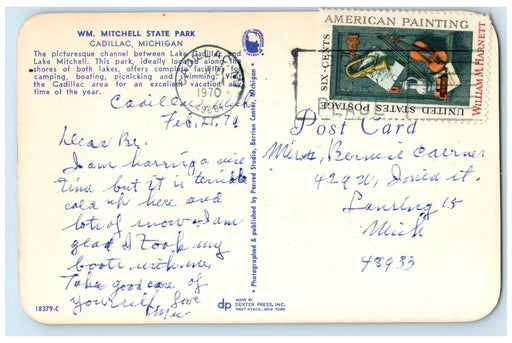 WM. MITCHELL STATE PARK
CADILLAC, MICHIGAN
The picturesque channel between Lake Cadillac and
Lake Mitchell. This park, ideally located along the
shores of both lakes, offers complete facilities for
camping, boating, picnicking and swimming,
the Cadillac area for an excellent vacation any
time of the year.
Cadillac
Feb. 21, 70
Dear Be.
I am having a nice
time but it is terrible
cold up here and
lots of snow. I am
glad I took my
boots with me.
Take good care of
yourself, love
18379-C
Photographed & published by Penrod Studio, Berrien Center, Michigan
dp
MADE BY
DEXTER PRESS, INC.
WEST NYACK, NEW YORK
1970
49601
AMERICAN PAINTING
SIX-CENTS
WILLIAM M. HARNETT
UNITED STATES POSTAGE
Post Card
Miss, Bernice
429 N,
Lansing 15
Mich
48933